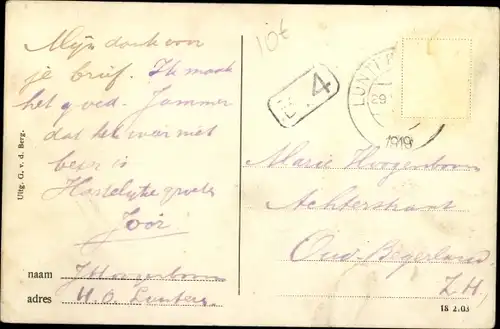 Mijn dank voor
je brief. Ik maak
het goed. Jammer
dat het weer niet
beter is
Hartelijke groeten
Joor
naam J Hoogenboom
adres H. O. Lunteren
Uitg. G. v. d. Berg.
10t
4
LUNTEREN
29
1919
Marie Hoogenboom
Achterstraat
Oud-Beyerland
Z.H.
18 2.03